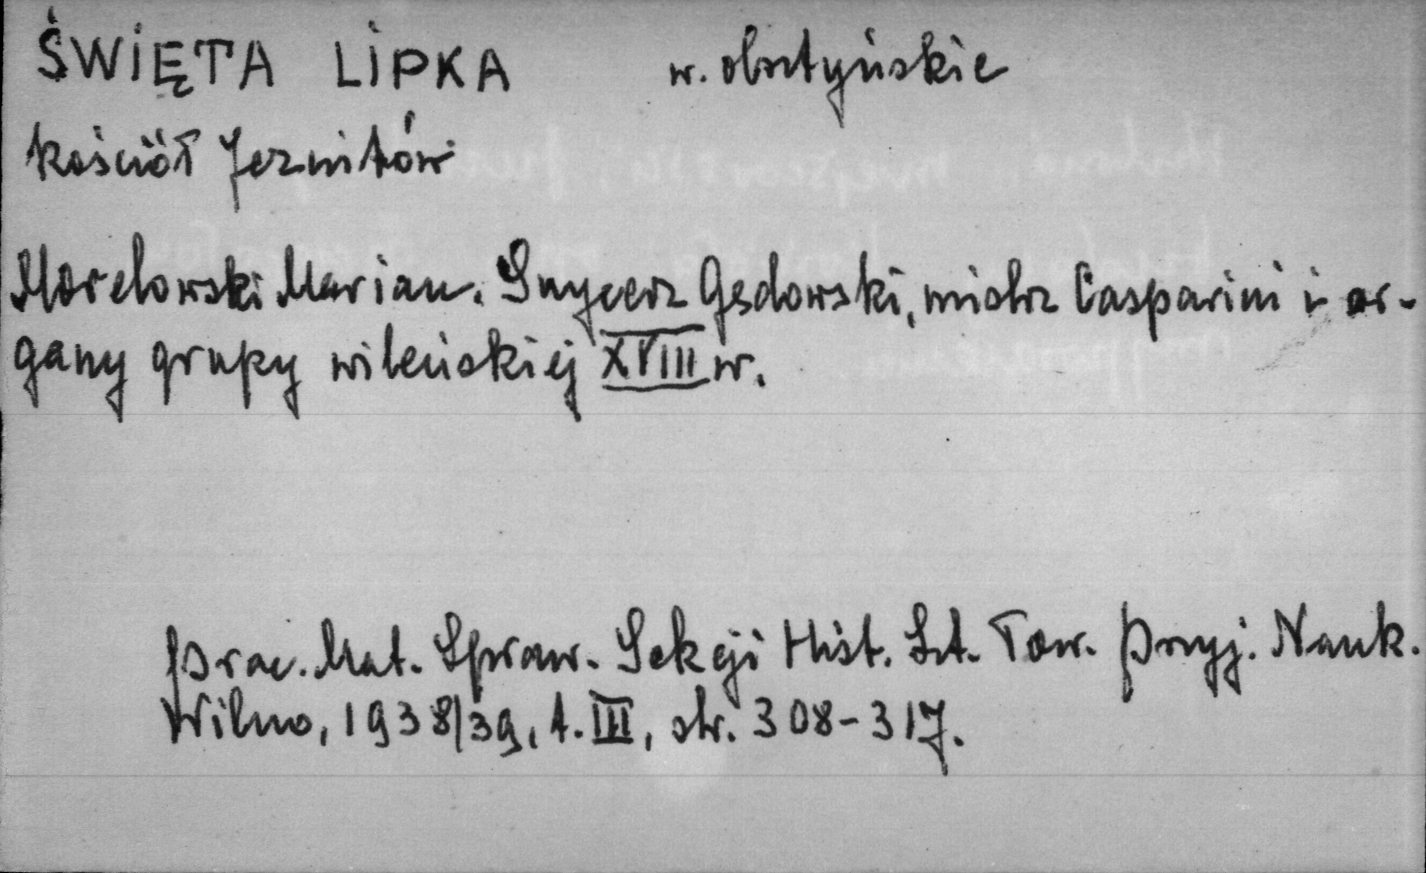 ŚWIĘTA LIPKA w. olsztyńskie
kościół Jezuitów
Morelowski Marian. Snycerz Gędowski, mistrz Casparini i or-
gany grupy wileńskiej XVIII w.
Prac. Mat. Spraw. Sekcji Hist. Szt. Tow. Przyj. Nauk.
Wilno, 1938/39, t. III, str. 308-317.